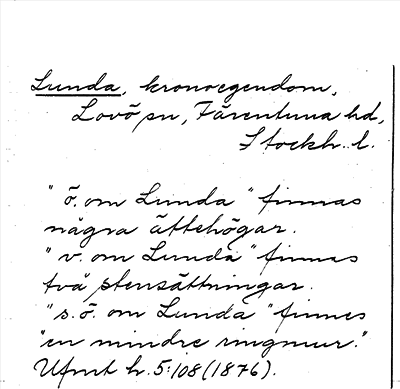 Lunda, kronoegendom,
Lovö sn, Färentuna hd,
Stockh. l.
"ö. om Lunda" finnas
några ättehögar.
"v. om Lunda" finnas
två stensättningar.
"s.ö. om Lunda" finnes
"en mindre ringmur."
Ufmt h. 5:108 (1876).